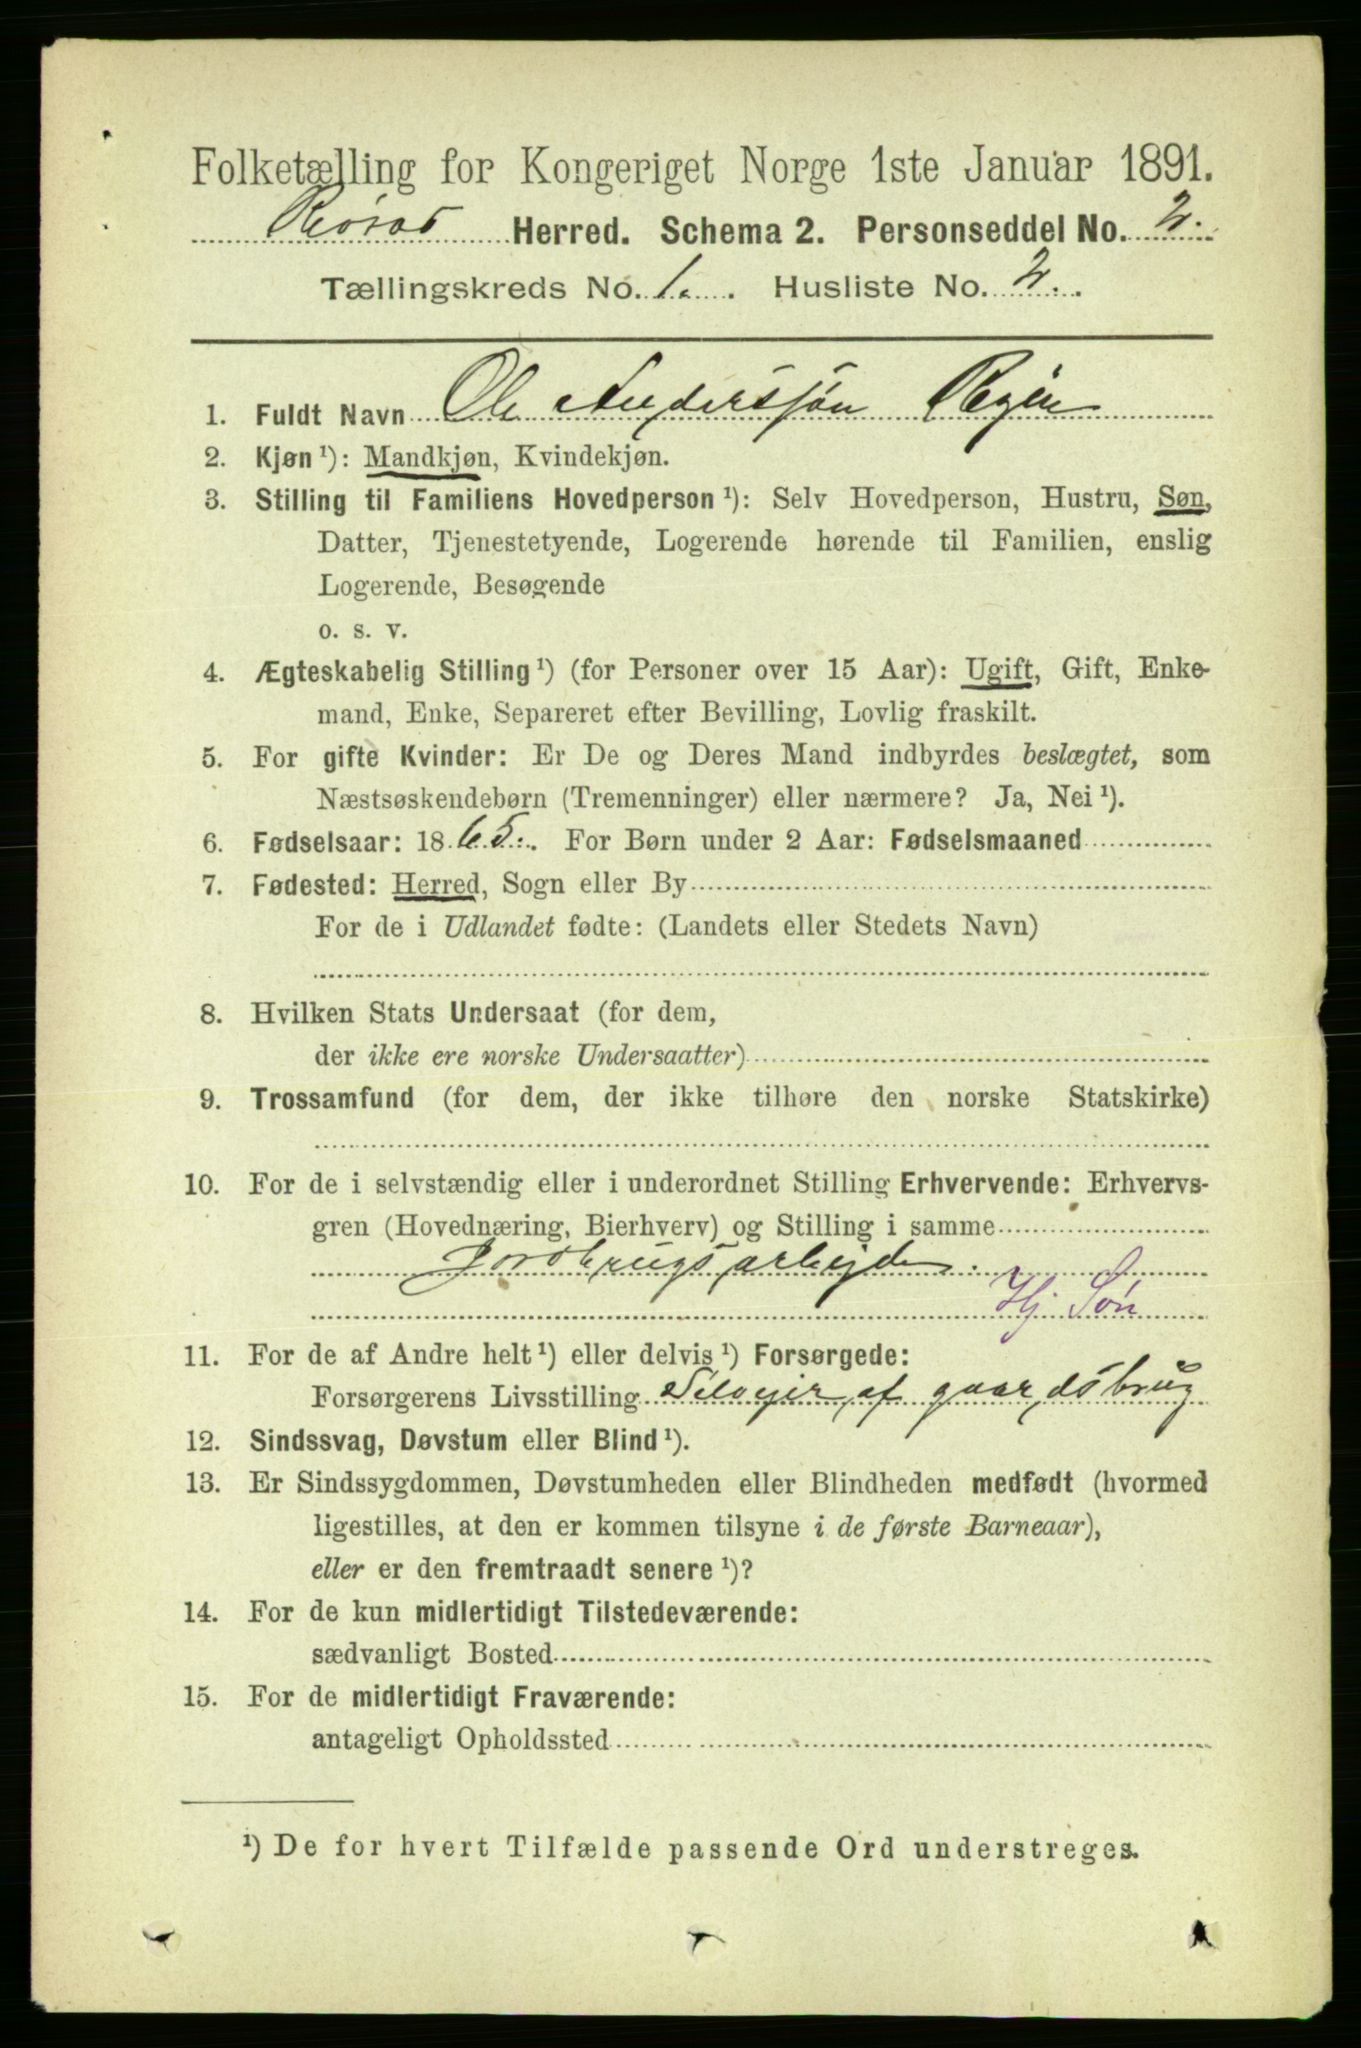 Folketælling for Kongeriget Norge 1ste Januar 1891.
Herred. Schema 2. Personseddel No. 2.
Tællingskreds No. 1. Husliste No. 2.
1. Fuldt Navn Ole Anderssøn
2. Kjøn ¹): Mandkjøn, Kvindekjøn.
3. Stilling til Familiens Hovedperson ¹): Selv Hovedperson, Hustru, Søn,
Datter, Tjenestetyende, Logerende hørende til Familien, enslig
Logerende, Besøgende
o. s. v.
4. Ægteskabelig Stilling ¹) (for Personer over 15 Aar): Ugift, Gift, Enke-
mand, Enke, Separeret efter Bevilling, Lovlig fraskilt.
5. For gifte Kvinder: Er De og Deres Mand indbyrdes beslægtet, som
Næstsøskendebørn (Tremenninger) eller nærmere? Ja, Nei ¹).
6. Fødselsaar: 1865. For Børn under 2 Aar: Fødselsmaaned
7. Fødested: Herred, Sogn eller By
For de i Udlandet fødte: (Landets eller Stedets Navn)
8. Hvilken Stats Undersaat (for dem,
der ikke ere norske Undersaatter)
9. Trossamfund (for dem, der ikke tilhøre den norske Statskirke)
10. For de i selvstændig eller i underordnet Stilling Erhvervende: Erhvervs-
gren (Hovednæring, Bierhverv) og Stilling i samme
Jordbrugsarbejde.
Hj Søn
11. For de af Andre helt ¹) eller delvis ¹) Forsørgede:
Forsørgerens Livsstilling Selvejer af gaardsbrug
12. Sindssvag, Døvstum eller Blind ¹).
13. Er Sindssygdommen, Døvstumheden eller Blindheden medfødt (hvormed
ligestilles, at den er kommen tilsyne i de første Barneaar),
eller er den fremtraadt senere ¹)?
14. For de kun midlertidigt Tilstedeværende:
sædvanligt Bosted
15. For de midlertidigt Fraværende:
antageligt Opholdssted
¹) De for hvert Tilfælde passende Ord understreges.